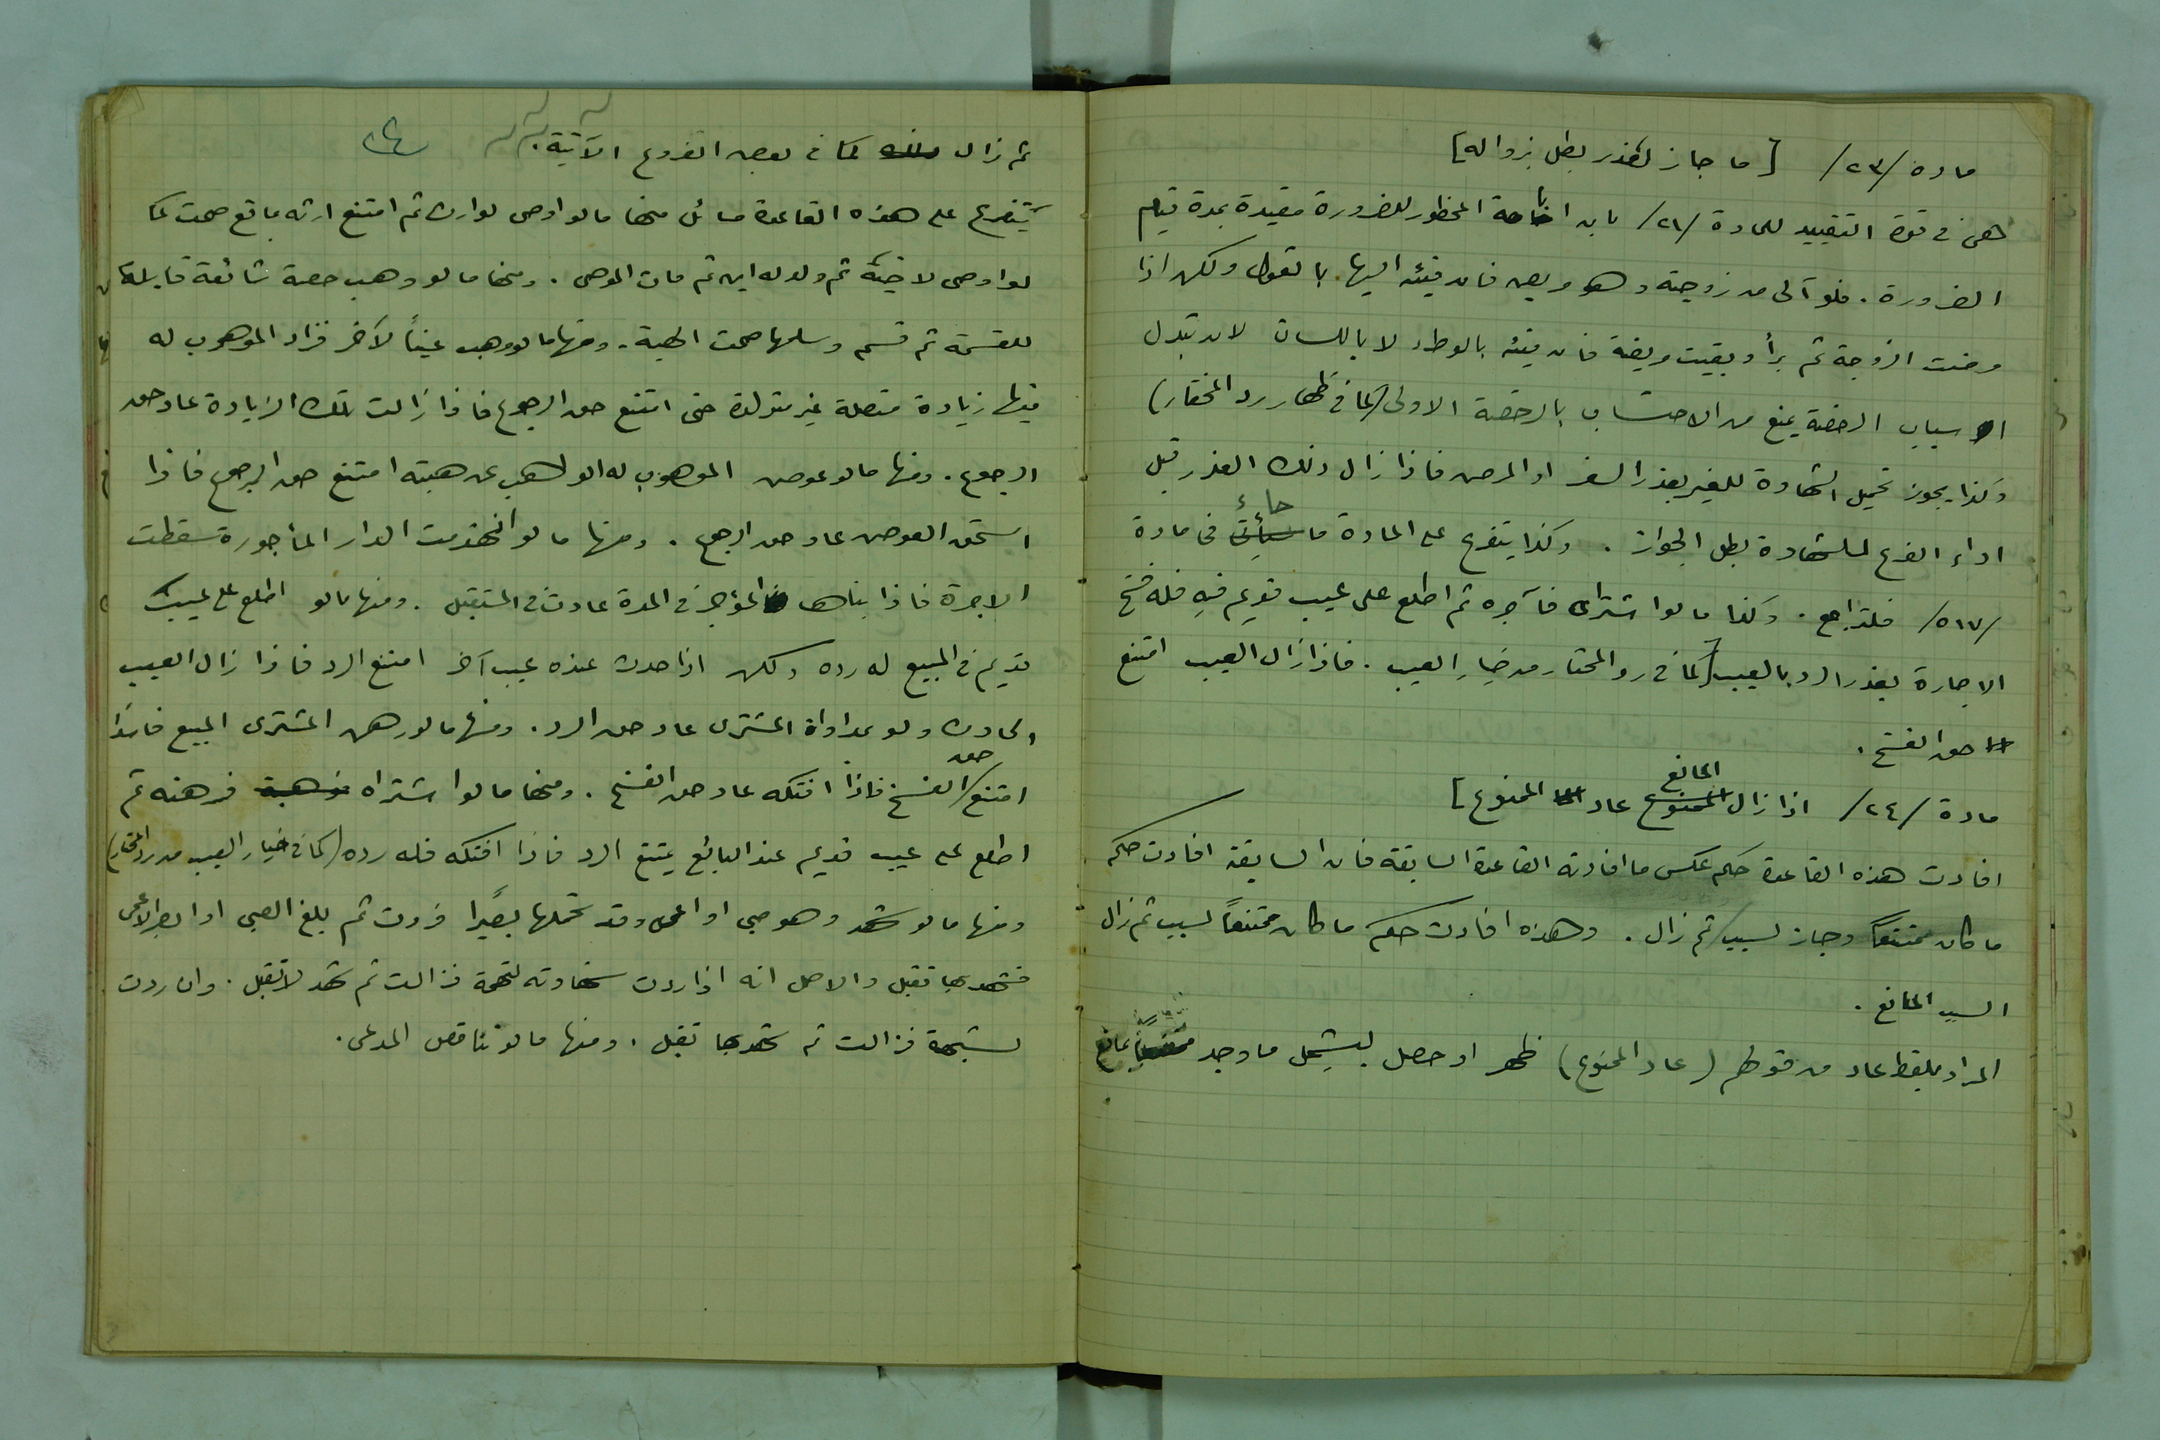 مادة /٢٣/ [ما جاز لعذر بطل بزواله]
هي في قوة التقييد للمادة /٢١/ بان اباحة المحظور للضرورة مقيدة بمدة قيام
الضرورة . فلو آلى من زوجته وهو مريض فان فيئه اليها بالقول ولكن اذا
مرضت الزوجة ثم برأ وبقيت مريضة فان فيئه بالوطء لا باللسان لان تبدل
اسباب الرخصة يمنع من الاحتساب بالرخصة الاولى (كما في ظهار رد المحتار)
وكذا يجوز تحميل الشهادة للغير بعذر السفر او المرض فاذا زال ذلك العذر قبل
اداء الفرع للشهادة بطل الجواز . وكذا يتفرع على المادة ما جاء في مادة
/٥١٧/ فلتراجع . وكذا ما لو اشترى فآجره ثم اطلع على عيب قديم فيه فله فسخ
الاجارة بعذر الرد بالعيب (كما في رد المحتار من خيار العيب . فاذا زال العيب امتنع
حق الفسخ .
مادة /٢٤/ اذا زال المانع عاد الممنوع]
افادت هذه القاعدة حكم عكس ما افادته القاعدة السابقة فان السابقة افادت حكم
ما كان ممتنعاً وجاز لسبب ثم زال . وهذه افادت حكم ما كان ممتنعاً لسبب ثم زال
السبب المانع .
المراد بلفظ عاد من قولهم (عاد الممنوع) ظهر او حصل ليشمل ما وجد بمانع
ثم زال كما في بعض الفروع الآتية .
يتفرع على هذه القاعدة مسائل منها ما لو اوصى لوارث ثم امتنع ارثه بمانع صحت كما
لو اوصى لاخيه ثم ولد له ابن ثم مات الموصي . ومنها ما لو وهب حصة شائعة قابلة
للقسمة ثم قسم وسلمها صحت الهبة . ومنها ما لو وهب عيناً لآخر فزاد الموهوب له
فيها زيادة متصلة غير متولدة حتى امتنع حق الرجوع فاذا زالت تلك الزيادة عاد حق
الرجوع . ومنها ما لو عوض الموهوب له الواهب عن هبته امتنع حق الرجوع فاذا
استحق العوض عاد حق الرجوع . ومنها ما لو انهدمت الدار المأجورة سقطت
الاجرة فاذا بناها المؤجر في المدة عادت في المستقبل . ومنها ما لو اطلع على عيب
قديم في المبيع له رده ولكن اذا حدث عنده عيب آخر امتنع الرد فاذا زال العيب
الحادث ولو بمداواة المشتري عاد حق الرد . ومنها ما لو رهن المشتري المبيع فاسدا
امتنع حق الفسخ فاذا افتكه عاد حق الفسخ . ومنها ما لو اشتراه فرهنه ثم
اطلع على عيب قديم عند البائع يمتنع الرد فاذا افتكه فله رده (كما في خيار العيب من رد المحتار)
ومنها ما لو شهد وهو صبي او اعمى وقد تحملها بصيرا فردت ثم بلغ الصبي او ابصر الاعمى
فشهد بها تقبل والاصل انه اذا ردت شهادته لتهمة فزالت ثم شهد لا تقبل . وان ردت
لشبهة فزالت ثم شهد بها تقبل . ومنها ما لو تناقض المدعى .